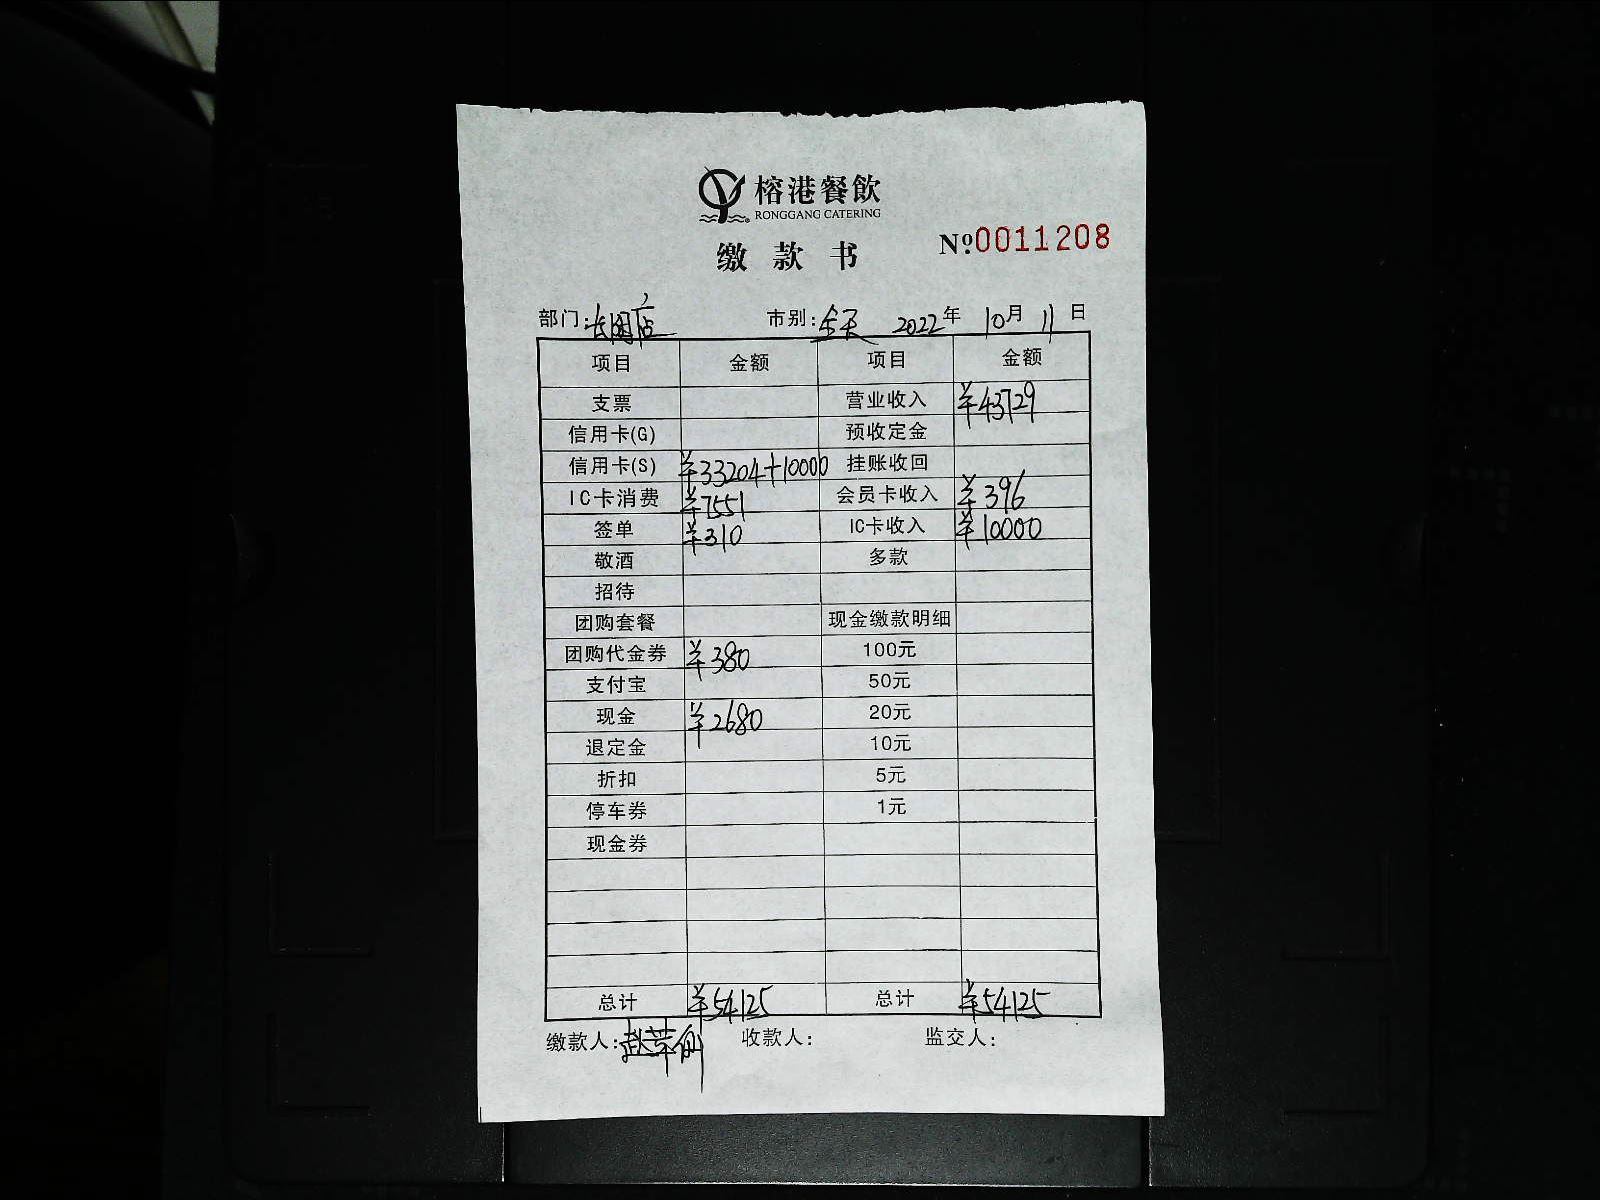 榕港餐飲
RONGGANG CATERING
缴款书
Nº.0011208
部门: 店 市别:全天 2022年 10月 11日
项目 金额 项目 金额
支票 营业收入 ¥43729
信用卡(G) 预收定金
信用卡(S) ¥33204+10000 挂账收回
IC卡消费 ¥7551 会员卡收入 ¥396
签单 ¥310 IC卡收入 ¥10000
敬酒 多款
招待
团购套餐 现金缴款明细
团购代金券 ¥380 100元
支付宝 50元
现金 ¥2680 20元
退定金 10元
折扣 5元
停车券 1元
现金券
总计 ¥54125 总计 ¥54125
缴款人:赵 收款人: 监交人: